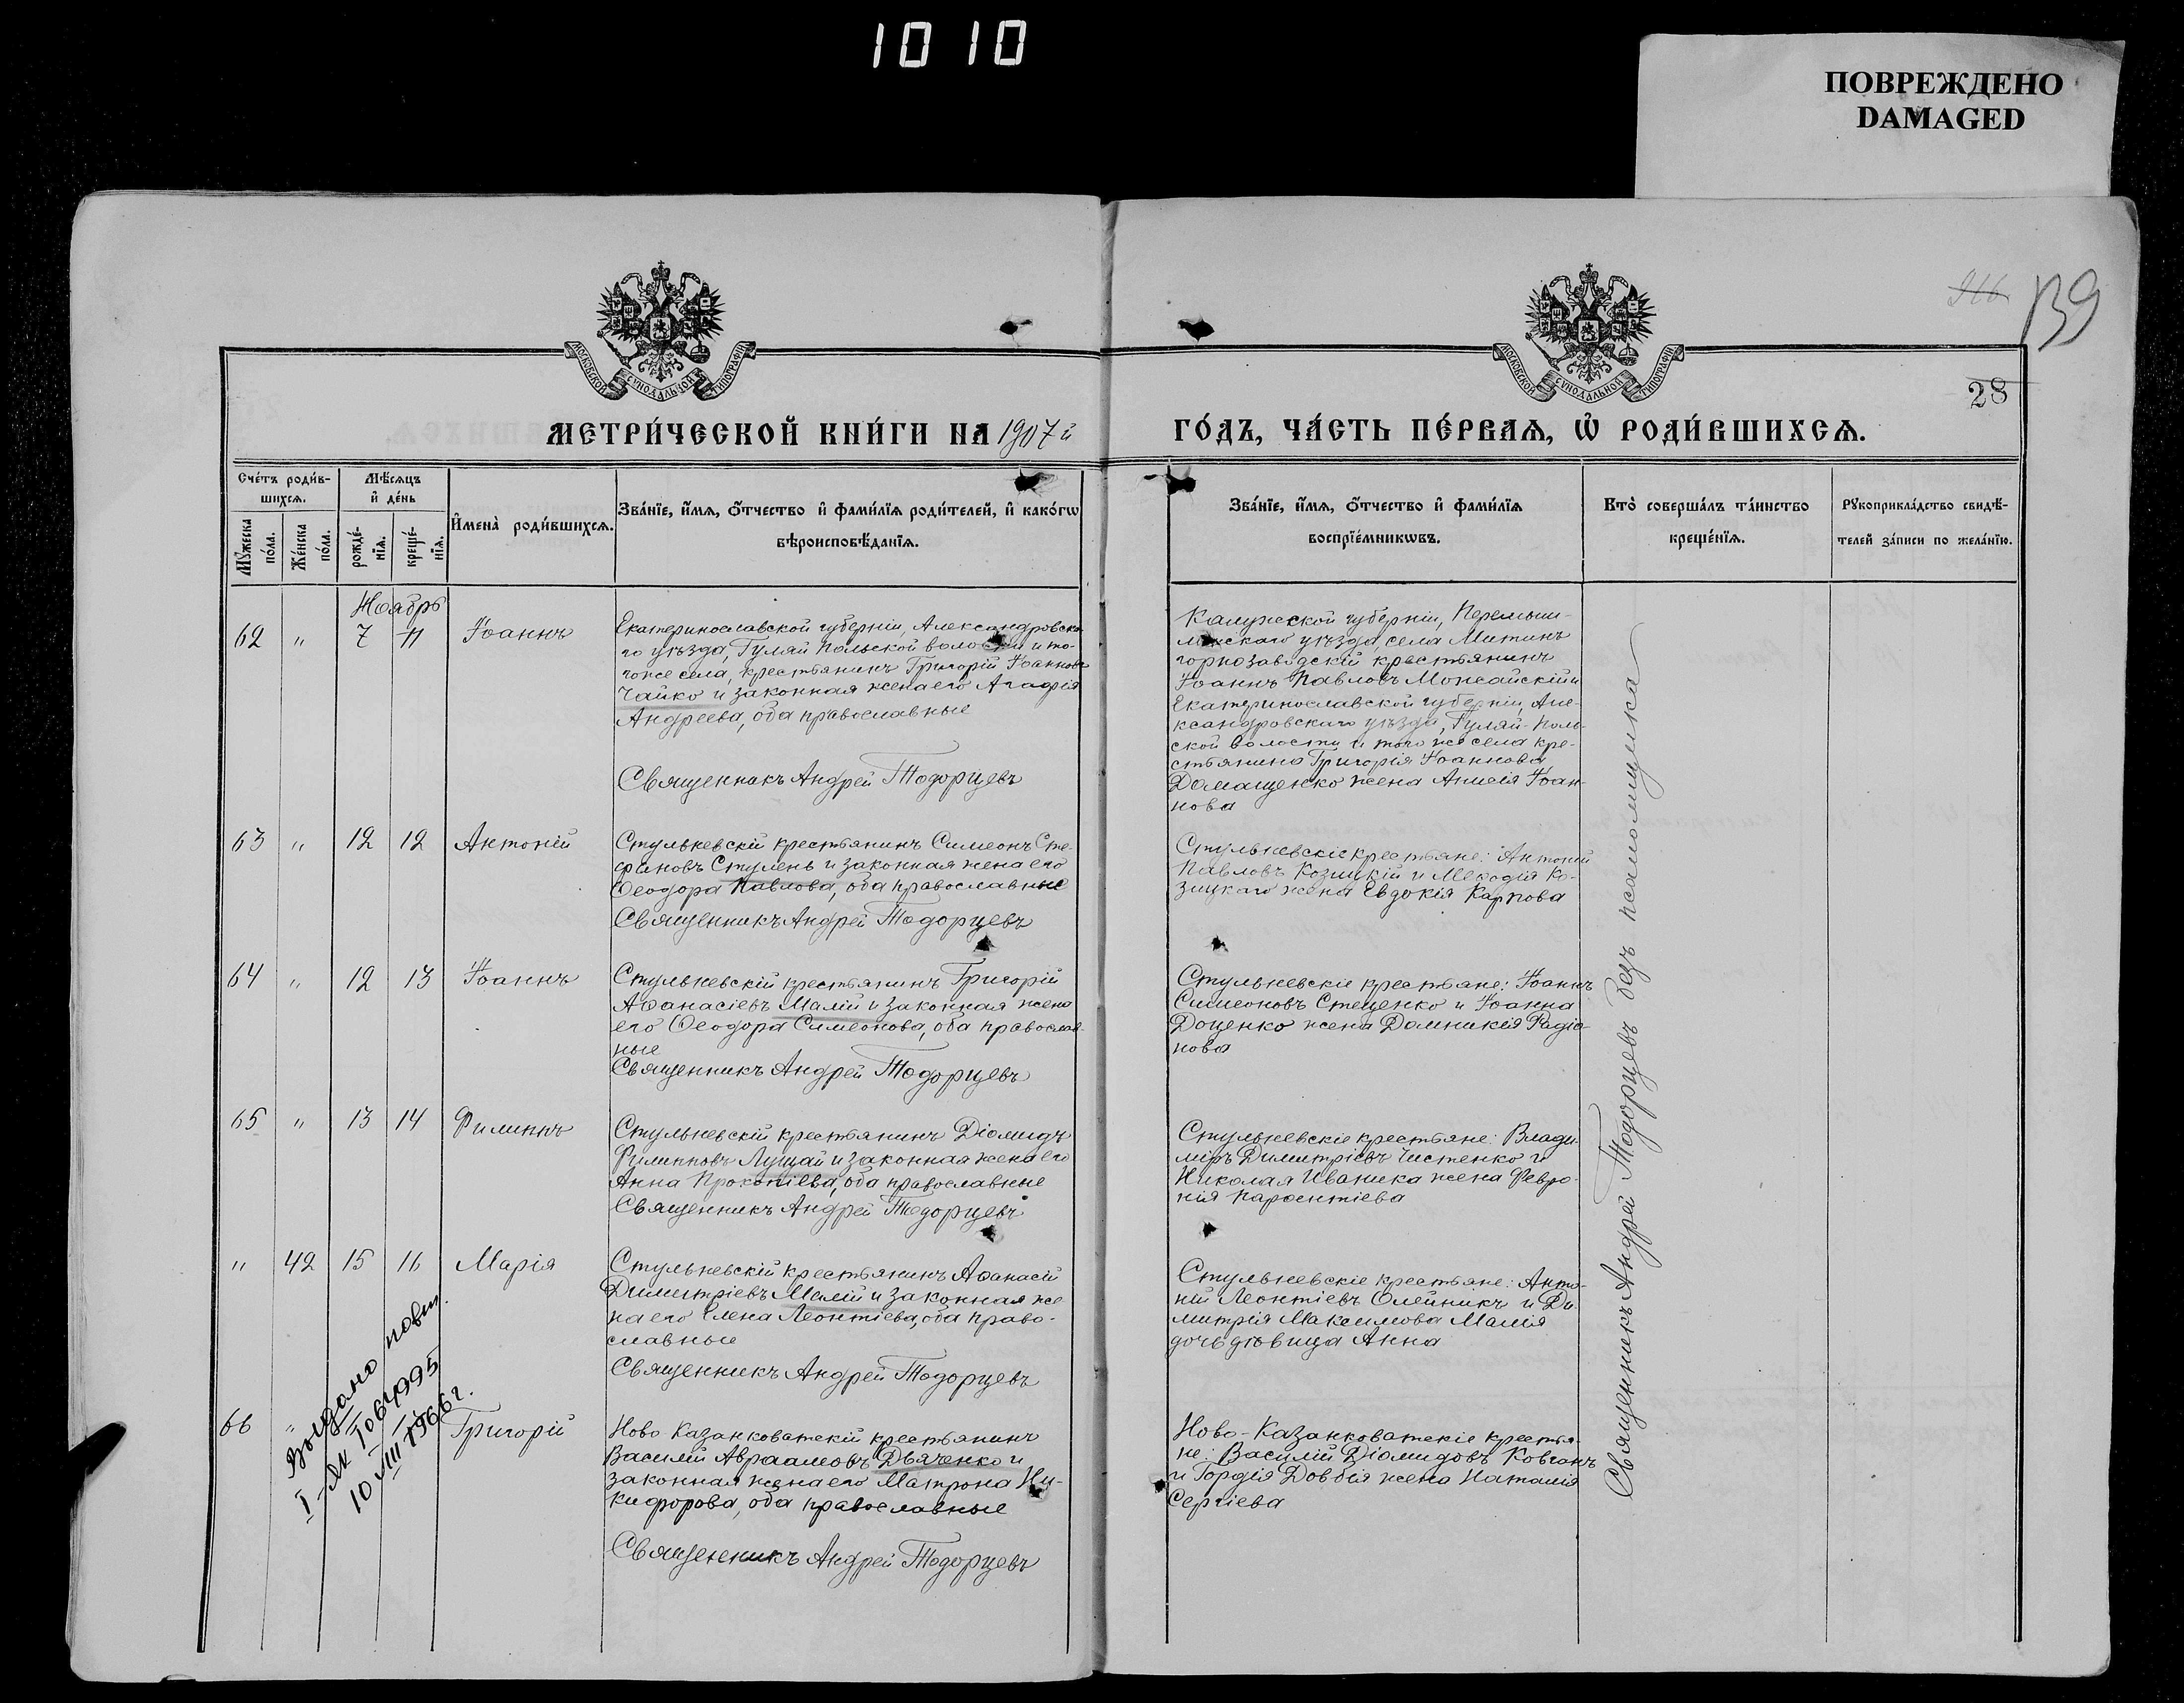 1010
ПОВРЕЖДЕНО
DAMAGED
916
139
28
МОСКОВСКОЙ СѴНОДАЛЬНОЙ ТИПОГРАФІИ
МОСКОВСКОЙ СѴНОДАЛЬНОЙ ТИПОГРАФІИ
МЕТРИ́ЧЕСКОЙ КНИ́ГИ НА 1907 й
ГО́ДЪ, ЧА́СТЬ ПЕ́РВАѦ, Ѡ҆ РОДИ́ВШИХСѦ.
Сче́тъ роди́в-
шихсѧ.
Мꙋ́жеска по́ла.
Же́нска по́ла.
Мѣ́сѧцъ
и҆ де́нь
рожде́-
нїѧ.
креще́-
нїѧ.
И҆мена̀ роди́вшихсѧ.
Зва́нїе, и҆́мѧ, ѻ҆́тчество и҆ фами́лїѧ роди́телей, и҆ како́гѡ
вѣроисповѣ́данїѧ.
Зва́нїе, и҆́мѧ, ѻ҆́тчество и҆ фами́лїѧ
воспрїе́мникѡвъ.
Кто̀ соверша́лъ та́инство
креще́нїѧ.
Рꙋкоприкла́дство свидѣ́-
телей за́писи по жела́нїю.
Ноябрь
62 " 7 11 Іоаннъ
Екатеринославской губерніи, Александровска-
го уѣзда, Гуляй Польской волости и то-
гоже села, крестьянинъ Григорій Іоанновъ
Чайко и законная жена его Агафія
Андреева, оба православные
Священникъ Андрей Тодорцевъ
Калужской губерніи, Перемыш-
льскаго уѣзда, села Митинъ
горнозаводскій крестьянинъ
Іоаннъ Павловъ Можайскій и
Екатеринославской губерніи, Але-
ксандровскаго уѣзда, Гуляй-Поль-
ской волости и того же села кре-
стьянина Григорія Іоаннова
Домащенко жена Анисія Іоан-
нова
63 " 12 12 Антоній
Стульневскій крестьянинъ Симеонъ Сте-
фановъ Стулень и законная жена его
Ѳеодора Павлова, оба православные
Священникъ Андрей Тодорцевъ
Стульневскіе крестьяне: Антоній
Павловъ Козицкій и Меѳодія Ко-
зицкаго жена Евдокія Карпова
64 " 12 13 Іоаннъ
Стульневскій крестьянинъ Григорій
Аѳанасіевъ Малій и законная жена
его Ѳеодора Симеонова, оба православ-
ные
Священникъ Андрей Тодорцевъ
Стульневскіе крестьяне: Іоаннъ
Симеоновъ Стеценко и Іоанна
Доценко жена Домникія Радіо-
нова
65 " 13 14 Филиппъ
Стульневскій крестьянинъ Діомидъ
Филипповъ Лущай и законная жена его
Анна Прокопіева, оба православные
Священникъ Андрей Тодорцевъ
Стульневскіе крестьяне: Влади-
міръ Димитріевъ Чистенко и
Николая Иваника жена Февро-
нія Парѳентіева
" 42 15 16 Марія
Стульневскій крестьянинъ Аѳанасій
Димитріевъ Малій и законная же
на его Елена Леонтіева, оба право-
славные
Священникъ Андрей Тодорцевъ
Стульневскіе крестьяне: Анто-
ній Леонтіевъ Олейникъ и Ди-
митрія Максимова Малія
дочь дѣвица Анна
Выдано повт.
I-ЯИ
10 VIII 1966 г.
66 " Григорій
Ново Казанковатскій крестьянинъ
Василій Авраамовъ Дьяченко и
законная жена его Матрона Ни-
кифорова, оба православные
Священникъ Андрей Тодорцевъ
Ново-Казанковатскіе крестья-
не: Василій Діомидовъ Ковганъ
и Гордія Довбія жена Наталія
Сергіева
Священникъ Андрей Тодорцевъ безъ псаломщика